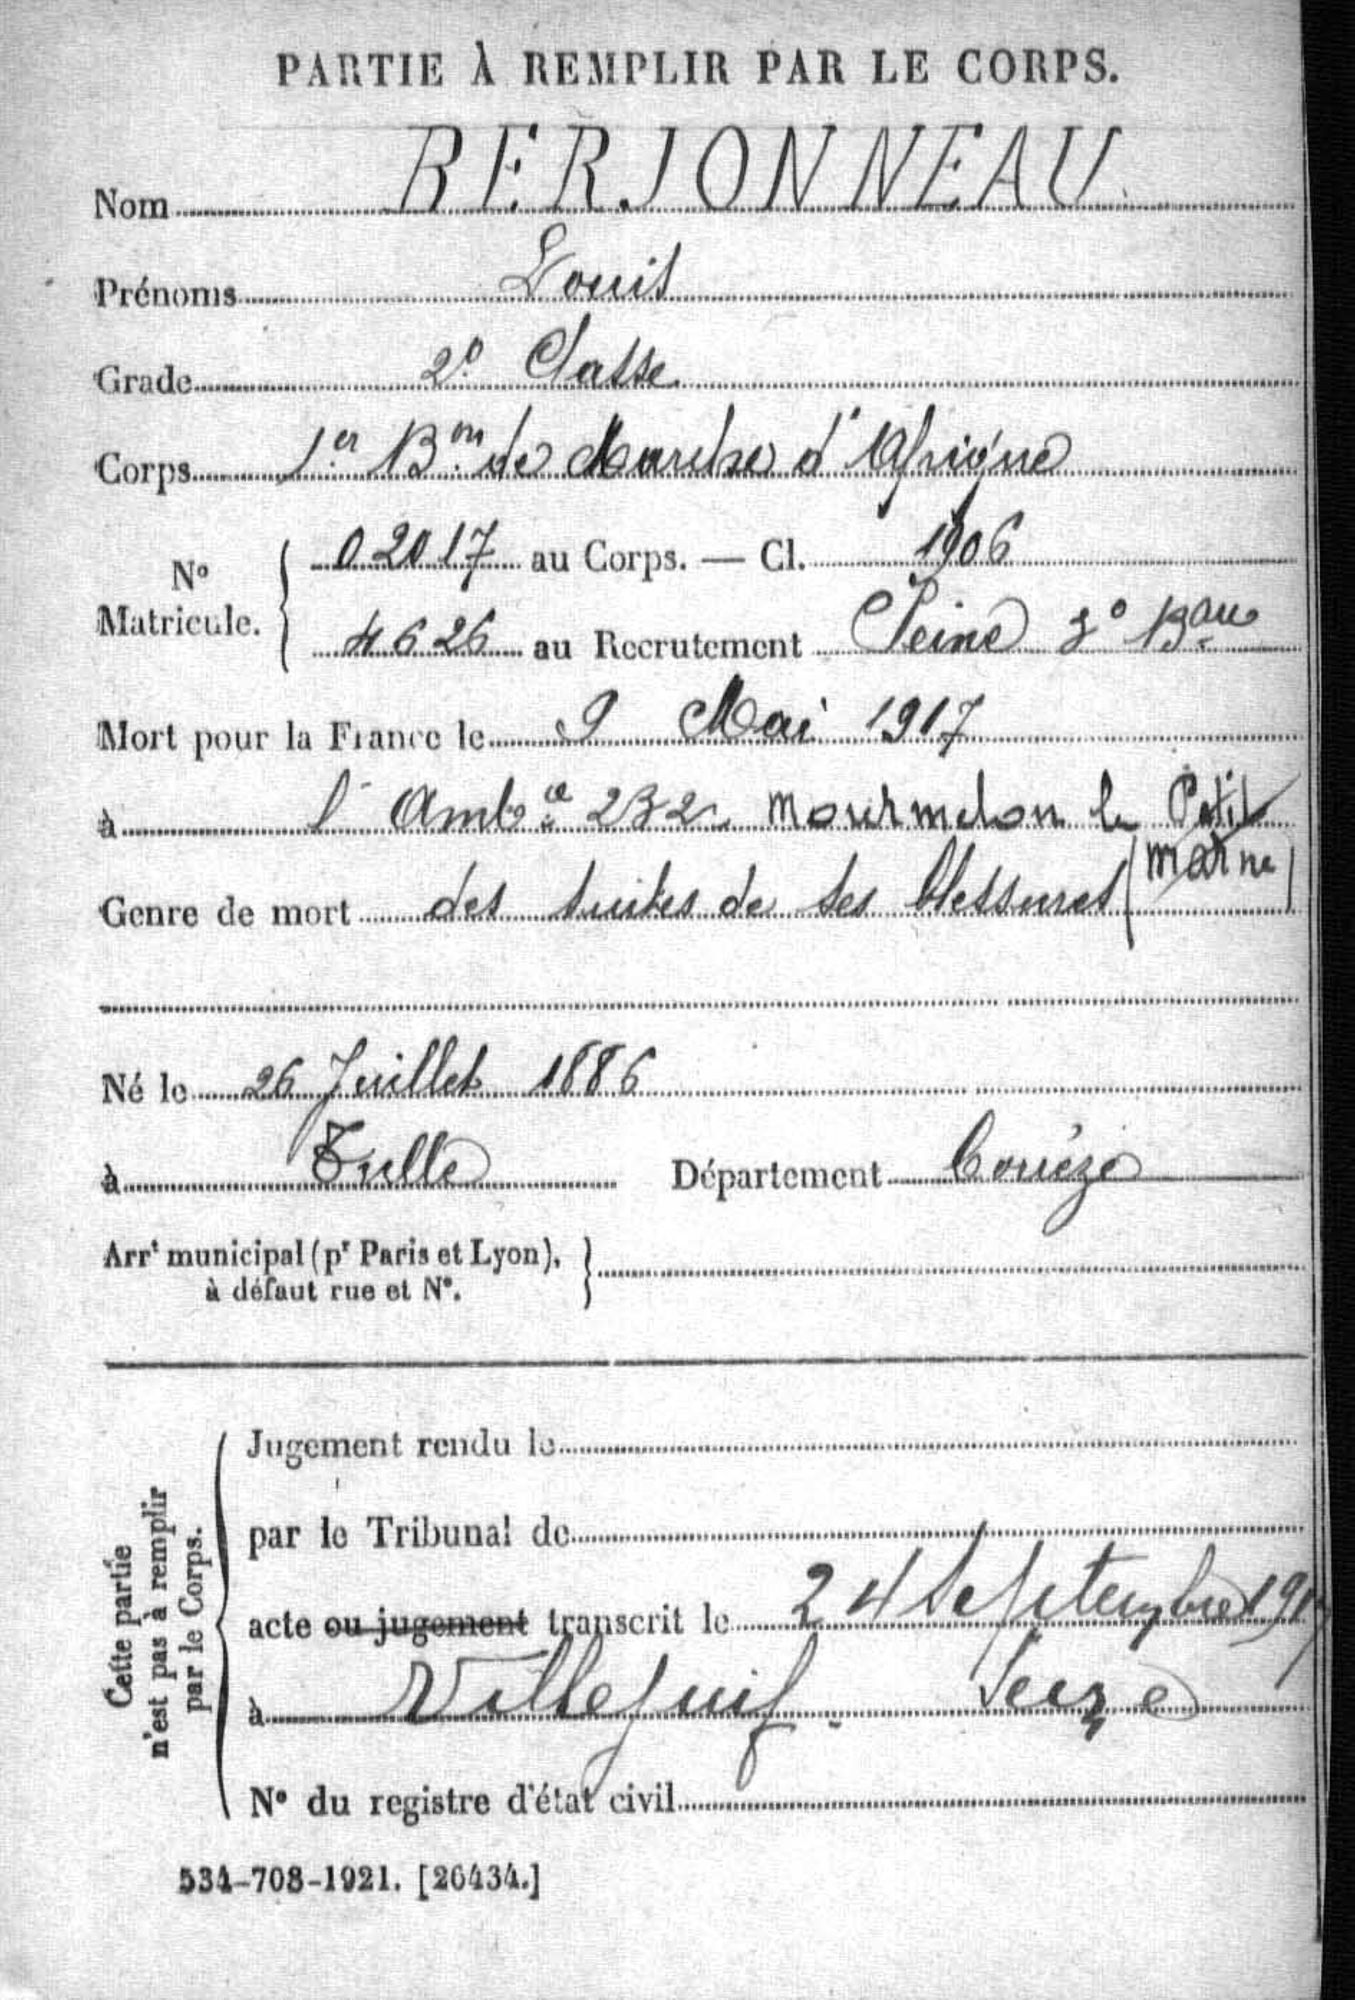 PARTIE À REMPLIR PAR LE CORPS.
Nom BERJONNEAU
Prénoms Louis
Grade 2e Classe
Corps 1er Bon de Marche d'Afrique
No Matricule. { 02017 au Corps. — Cl. 1906
4626 au Recrutement Seine 3e Bau
Mort pour la France le 9 Mai 1917
à l'Ambce 232 Mourmelon le Petit
(Marne)
Genre de mort des suites de ses blessures
Né le 26 Juillet 1886
à Tulle Département Corrèze
Arrt municipal (pr Paris et Lyon), }
à défaut rue et No.
Cette partie
n'est pas à remplir
par le Corps.
Jugement rendu le
par le Tribunal de
acte ou jugement transcrit le 24 Septembre 1917
à Villejuif - Seine
No du registre d'état civil
534-708-1921. [26434.]